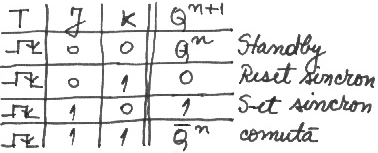 T J K Q^{n+1}
0 0 Q^n Standby
0 1 0 Reset sincron
1 0 1 Set sincron
1 1 Q̅^n comută